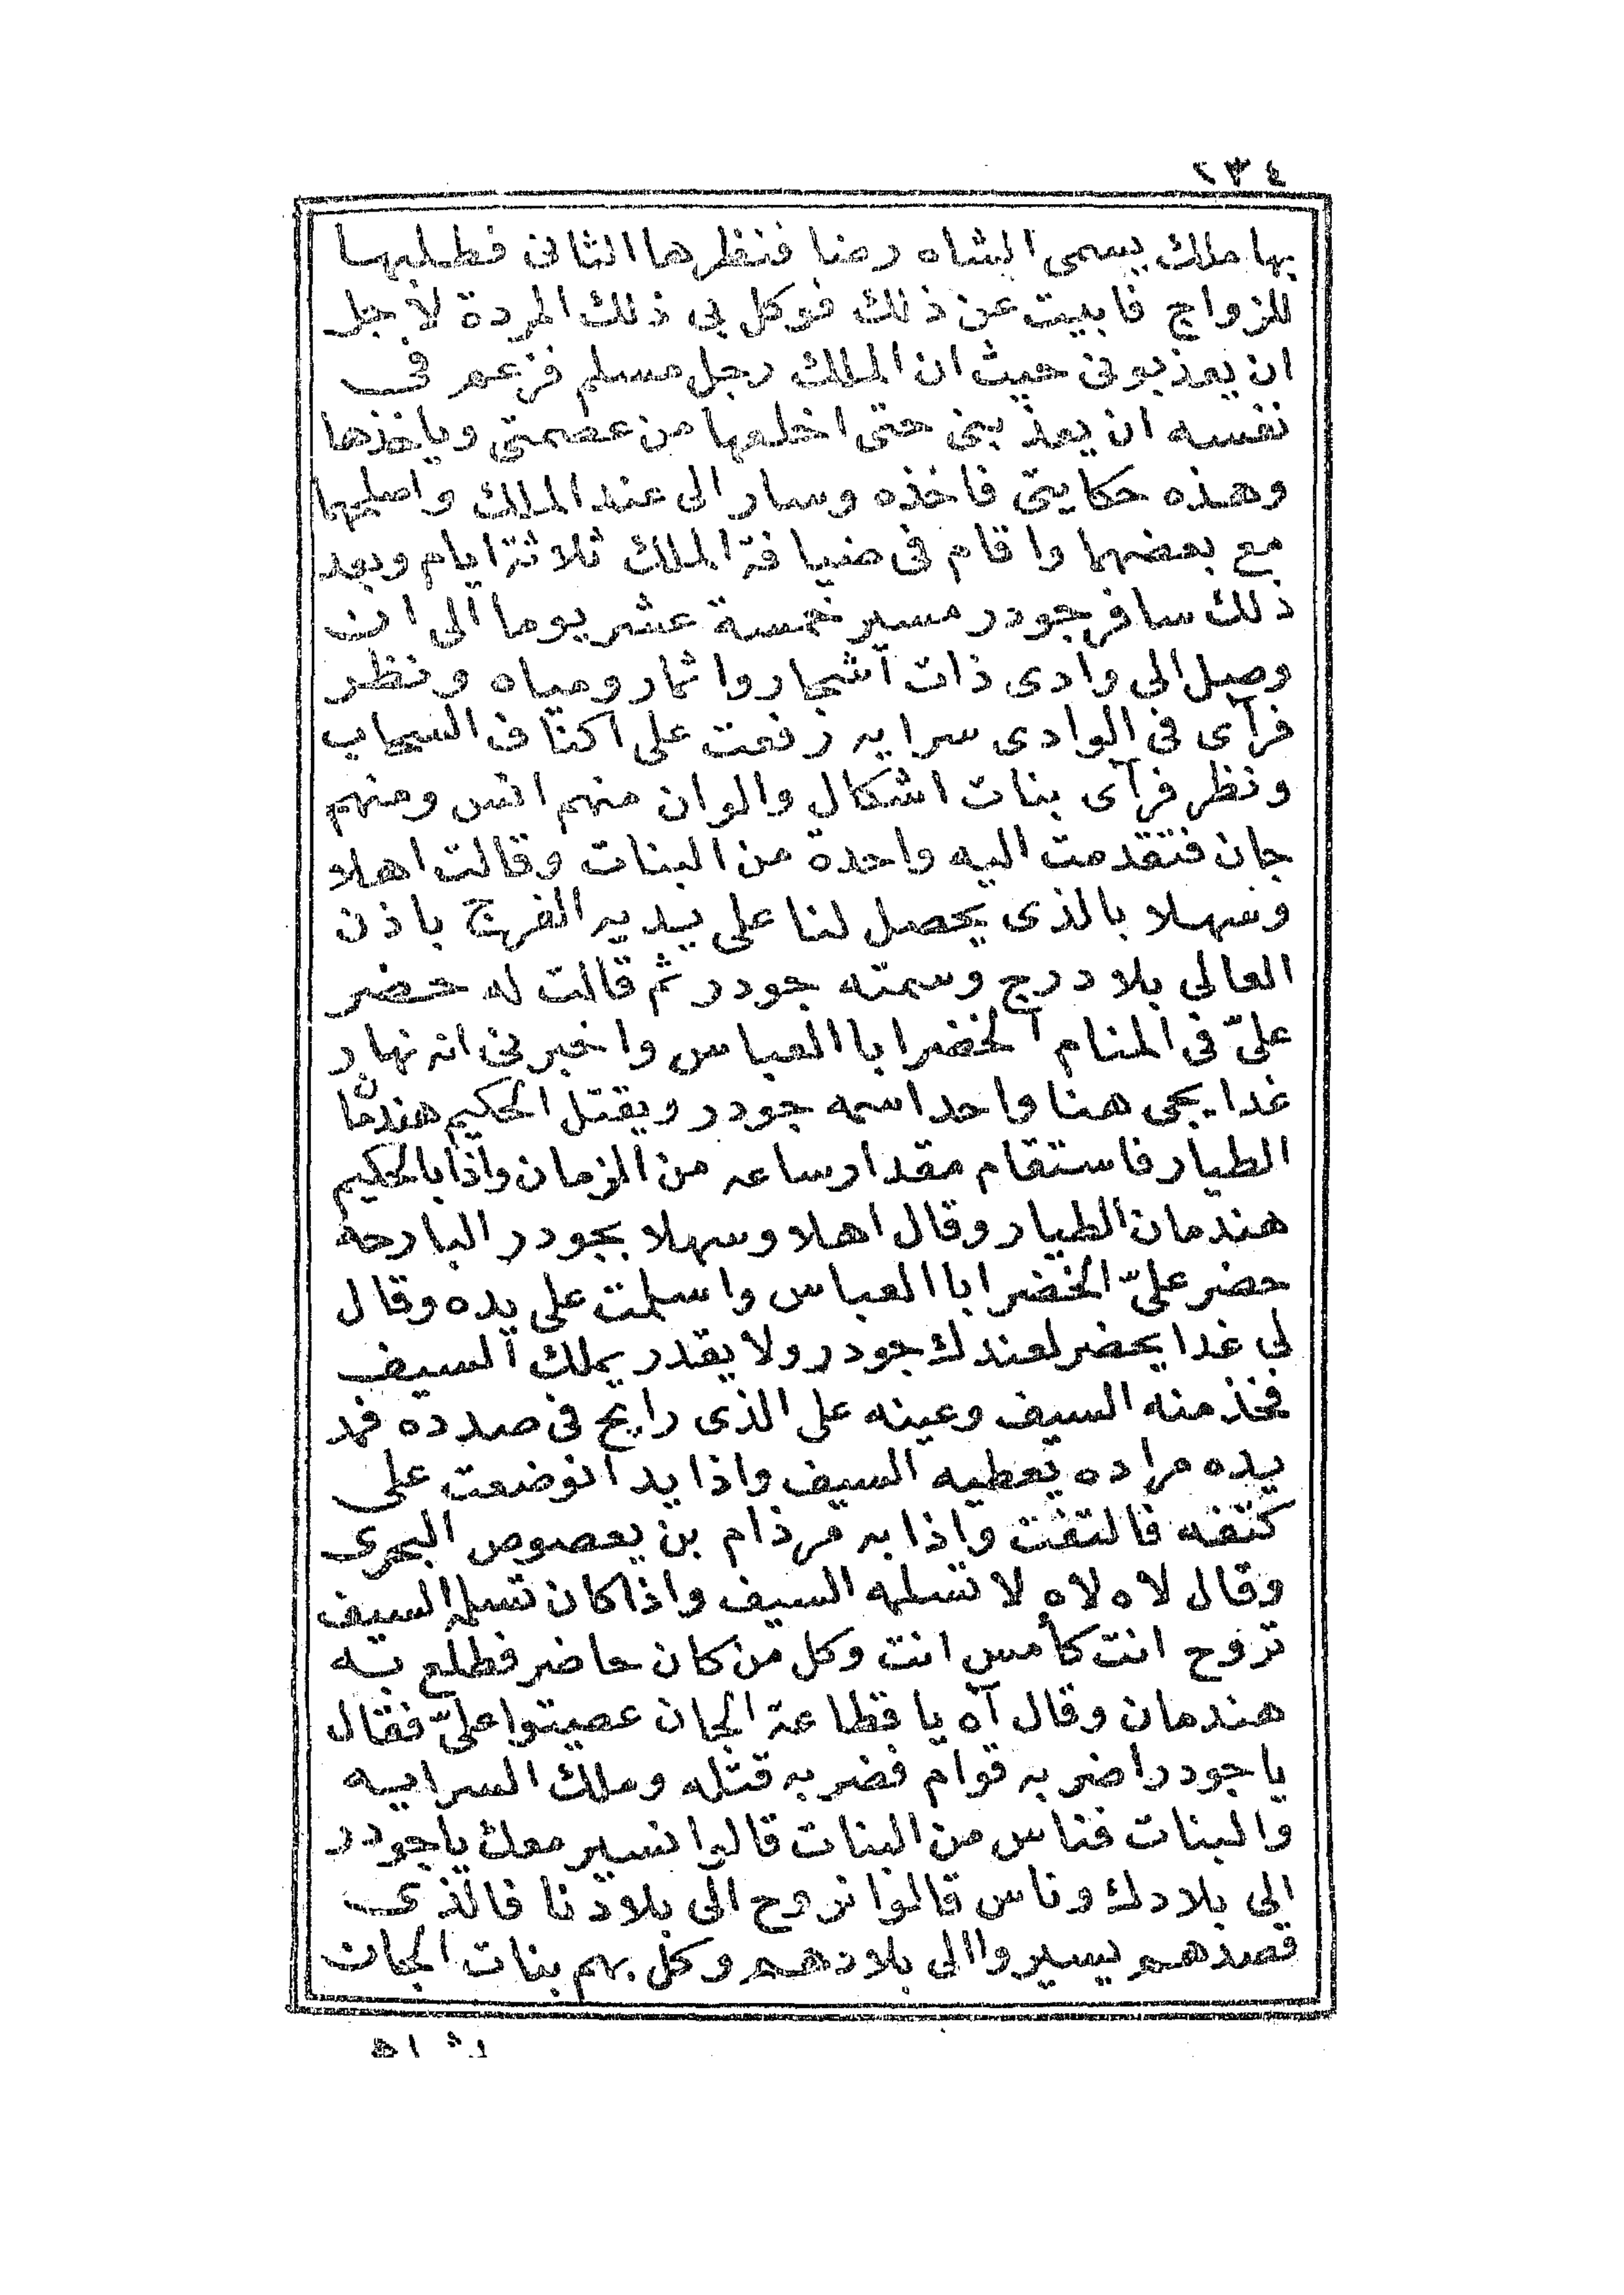 ٢٣٤
بها ملك يسمى الشاه رضا فنظرها الثانى فطلبها
للزواج فابيت عن ذلك فوكل بى ذلك المردة لاجل
ان يعذبونى حيث ان الملك رجل مسلم فزعم فى
نفسه ان يعذبنى حتى اخلعها من عصمتى وياخذها
وهذه حكايتى فاخذه وسار الى عند الملك واصلحهما
مع بعضهما واقام فى ضيافة الملك ثلاثة ايام وبعد
ذلك سافر جودر مسير خمسة عشر يوما الى ان
وصل الى وادى ذات اشجار واثمار ومياه ونظر
فرآى فى الوادى سرايه رفعت على اكتاف السحاب
ونظر فرآى بنات اشكال والوان منهم انس ومنهم
جان فتقدمت اليه واحدة من البنات وقالت اهلا
وسهلا بالذى يحصل لنا على يديه الفرج باذن
العالى بلا درج وسمته جودر ثم قالت له حضر
علىّ فى المنام الخضر ابا العباس واخبرنى انه نهار
غدا يجى هنا واحد اسمه جودر ويقتل الحكيم هندمان
الطيار فاستقام مقدار ساعه من الزمان واذا بالحكيم
هندمان الطيار وقال اهلا وسهلا بجودر البارحة
حضر علىّ الخضر ابا العباس واسلمت على يده وقال
لى غدا يحضر لعندك جودر ولا يقدر يملك السيف
فخذ منه السيف وعينه على الذى رايح فى صدده فمد
يده مراده يعطيه السيف واذا يد انوضعت على
كتفه فالتفت واذا به مرذام بن يعصوص البحرى
وقال لاه لاه لا تسلمه السيف واذا كان تسلمه السيف
تروح انت كأمس انت وكل من كان حاضر فطلع به
هندمان وقال آه يا قطاعة الجان عصيتوا علىّ فقال
يا جودر اضربه قوام فضربه قتله وملك السرايه
والبنات فناس من البنات قالوا نسير معك يا جودر
الى بلادك وناس قالوا نروح الى بلادنا فالذى
قصدهم يسيروا الى بلادهم وكل بهم بنات الجان